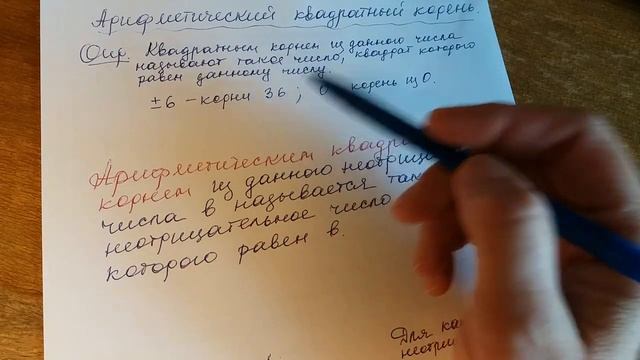 Арифметический квадратный корень.
Опр. Квадратным корнем из данного числа
называют такое число, квадрат которого
равен данному числу.
±6 – корни 36 ; 0 корень из 0.
Арифметическим
корнем из данного
числа в называется
неотрицательное число
которого равен в.
Для